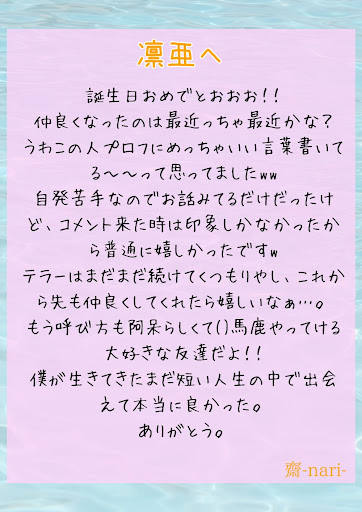 凛亜へ
誕生日おめでとおおお!!
仲良くなったのは最近っちゃ最近かな?
うわこの人プロフにめっちゃいい言葉書いて
る〜〜って思ってましたww
自発苦手なのでお話みてるだけだったけ
ど、コメント来た時は印象しかなかったか
ら普通に嬉しかったですw
テラーはまだまだ続けてくつもりやし、これか
ら先も仲良くしてくれたら嬉しいなぁ…。
もう呼び方も阿呆らしくて()馬鹿やってける
大好きな友達だよ!!
僕が生きてきたまだ短い人生の中で出会
えて本当に良かった。
ありがとう。
齋-nari-